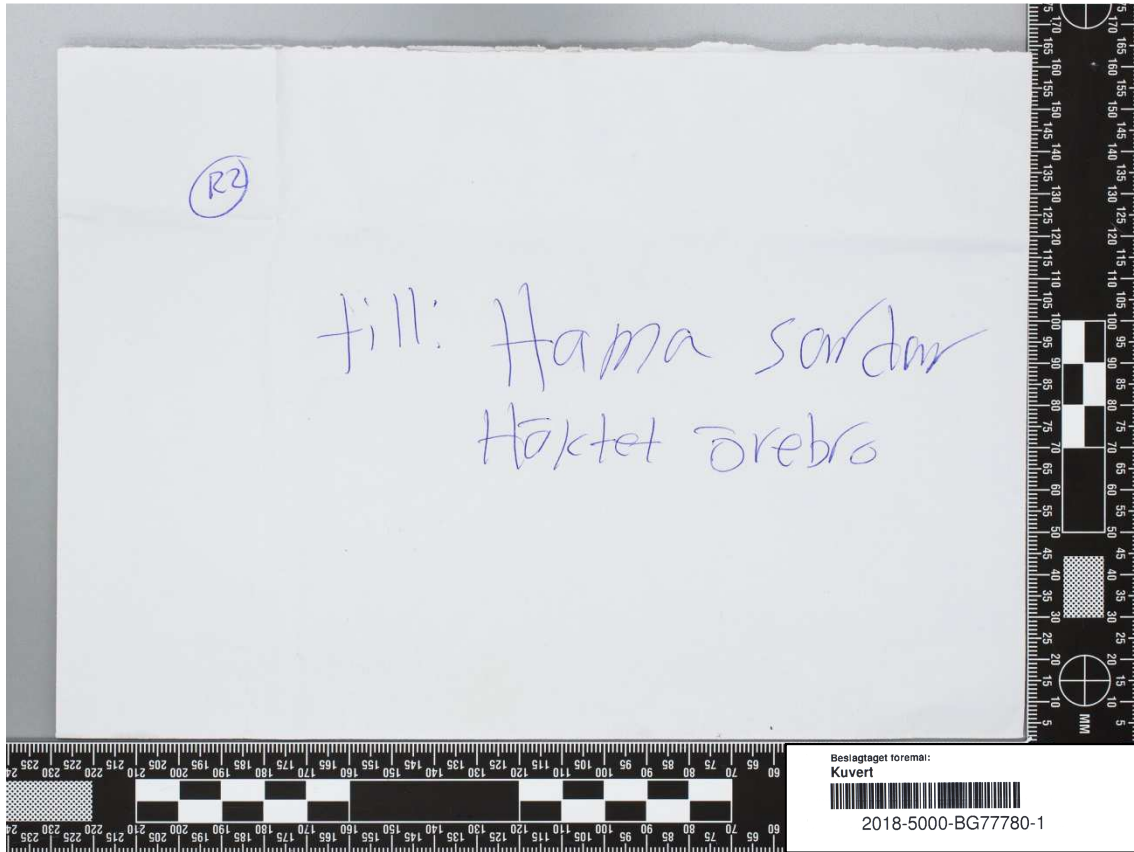 R2
till: Hama sardar
Häktet örebro
Beslagtaget föremål:
Kuvert
2018-5000-BG77780-1
MM